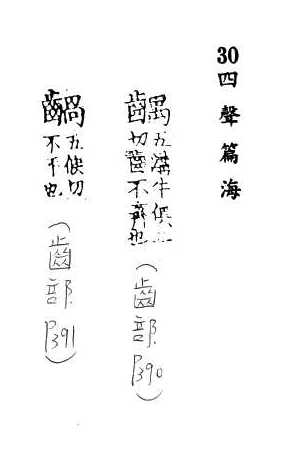 30四聲篇海
齵五溝牛俱二
切齒不齊也
(齒部P390)
五侯切
不平也
(齒部P391)